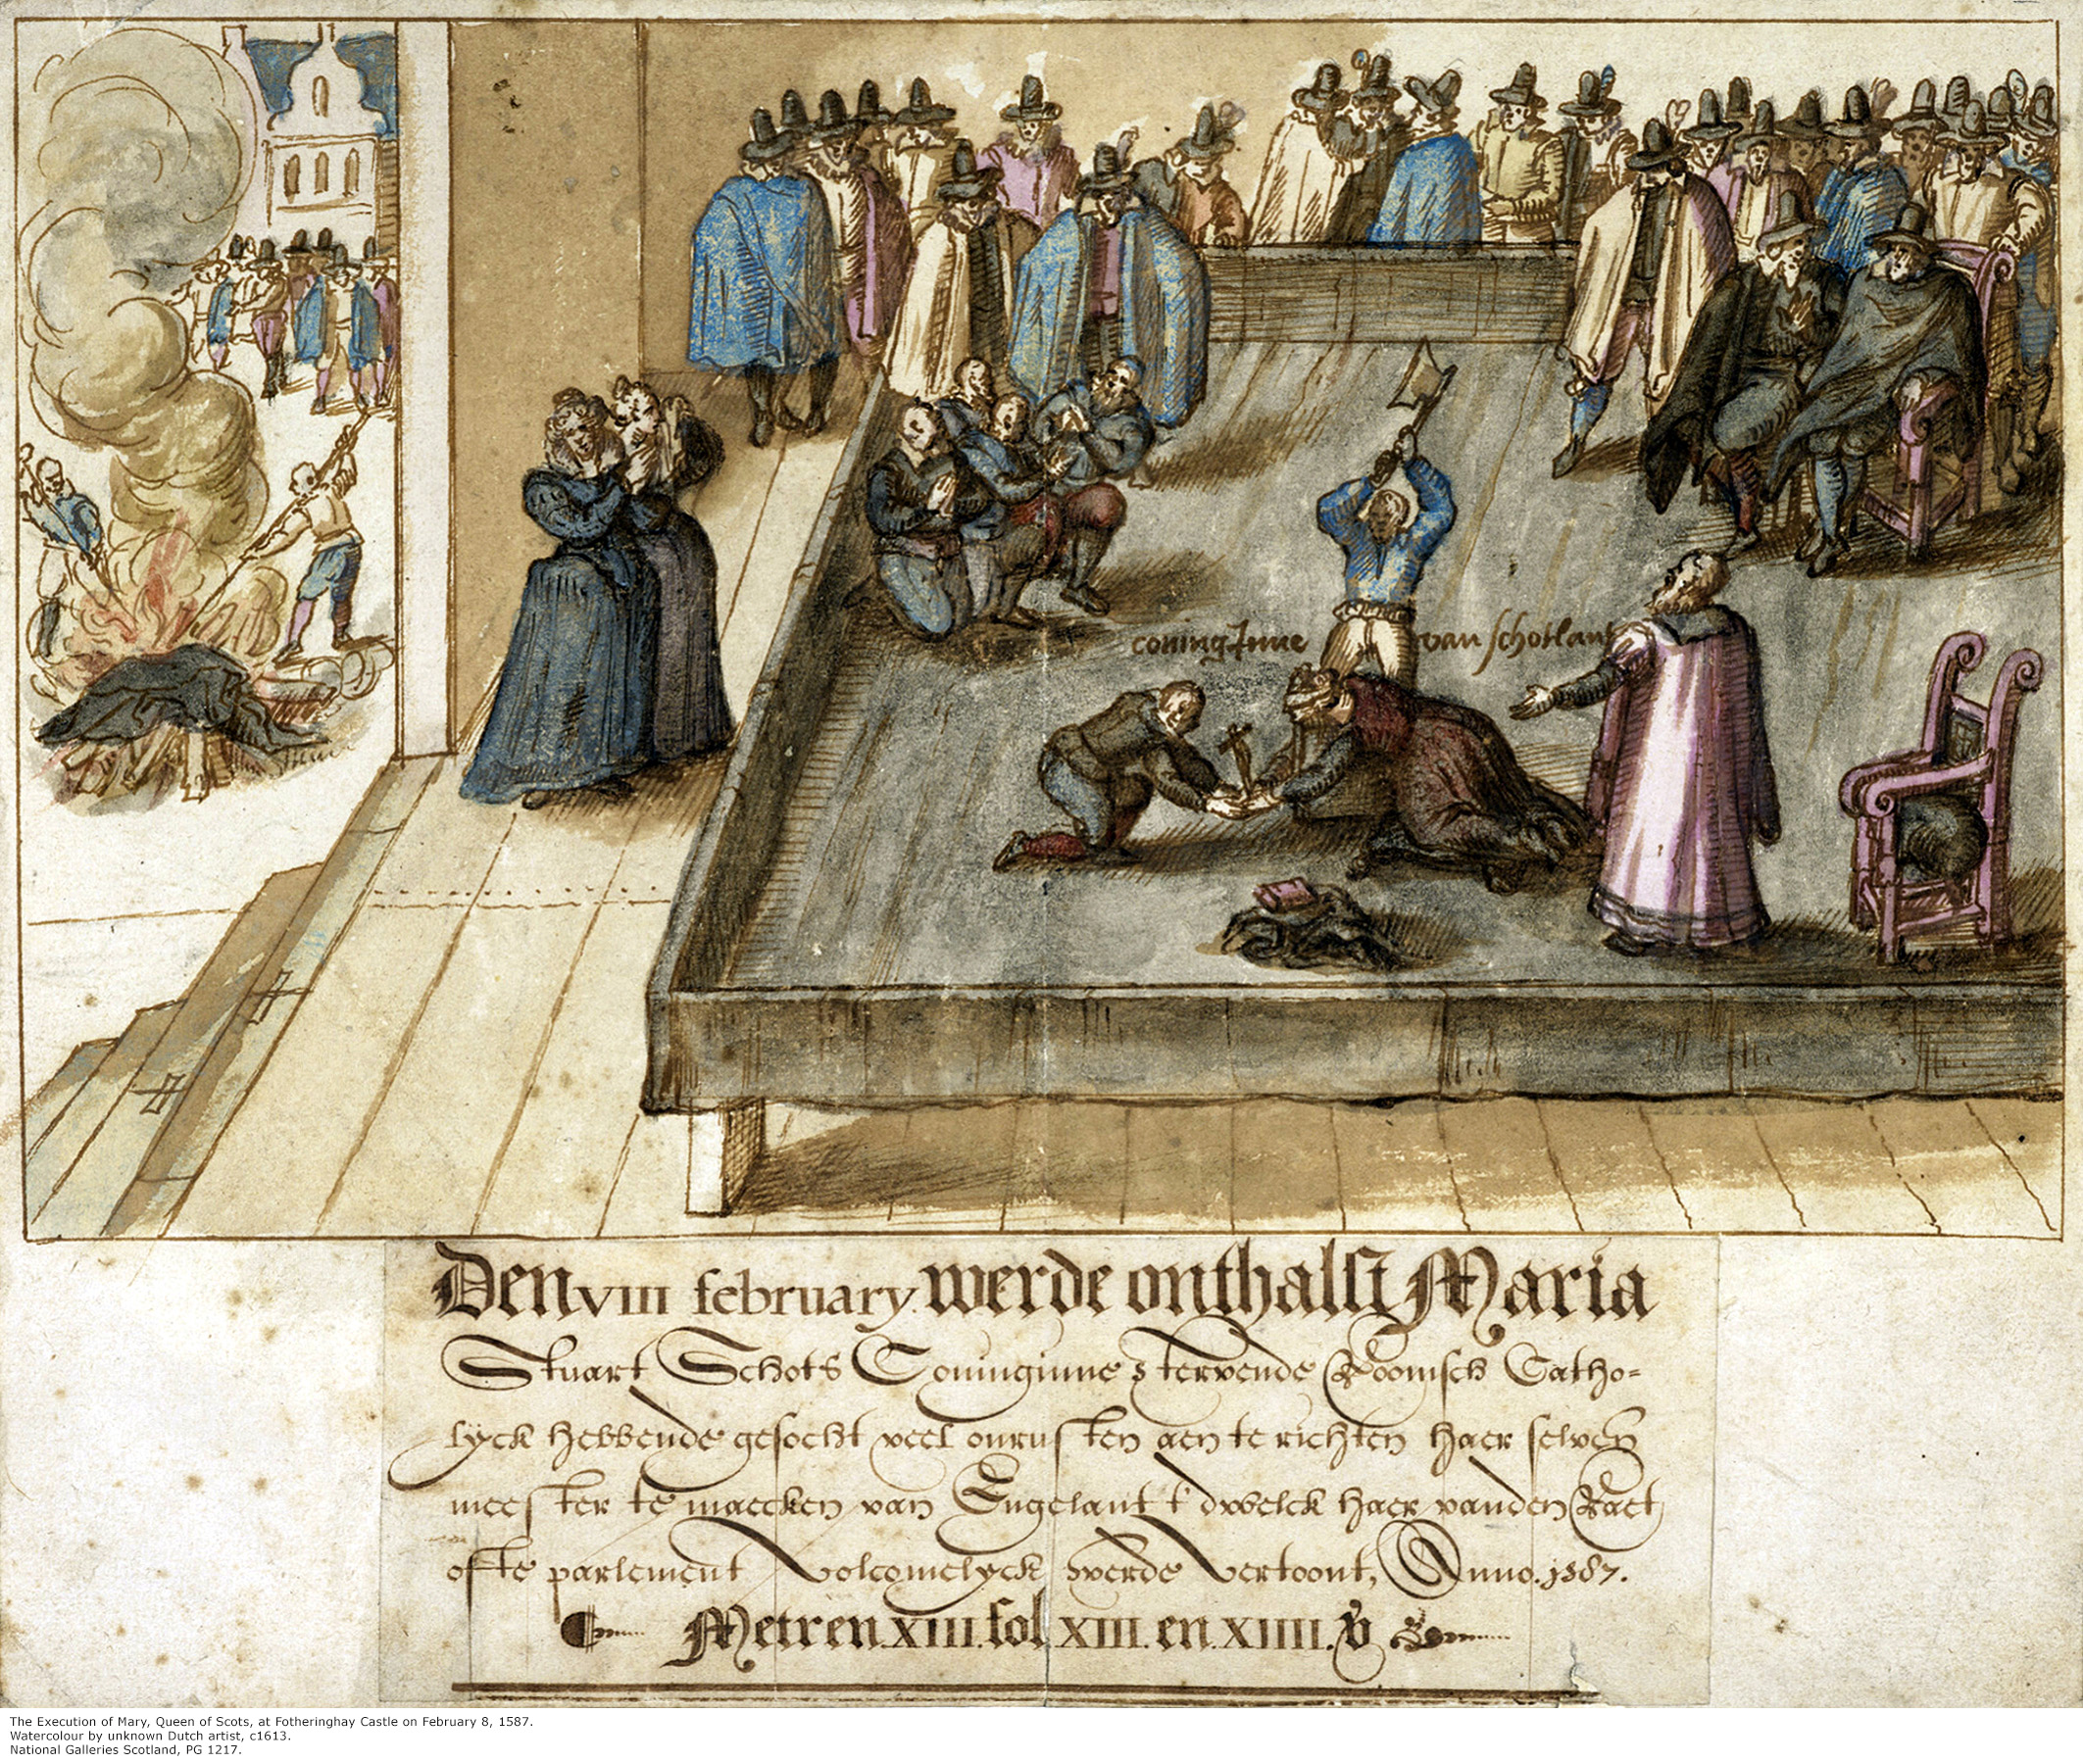 coninginne van schotlant
Den VIII february. werde onthalst Maria
Stuart Schots Coninginne stervende Roomsch Catho-
lyck hebbende gesocht veel onrusten aen te richten haer selven
meester te maecken van Engelant t' dwelck haer vanden Raet
ofte parlement Volcomelyck werde Vertoont, Anno. 1587.
Metren. XIII. fol. XIII. en. XIIII. v
The Execution of Mary, Queen of Scots, at Fotheringhay Castle on February 8, 1587.
Watercolour by unknown Dutch artist, c1613.
National Galleries Scotland, PG 1217.